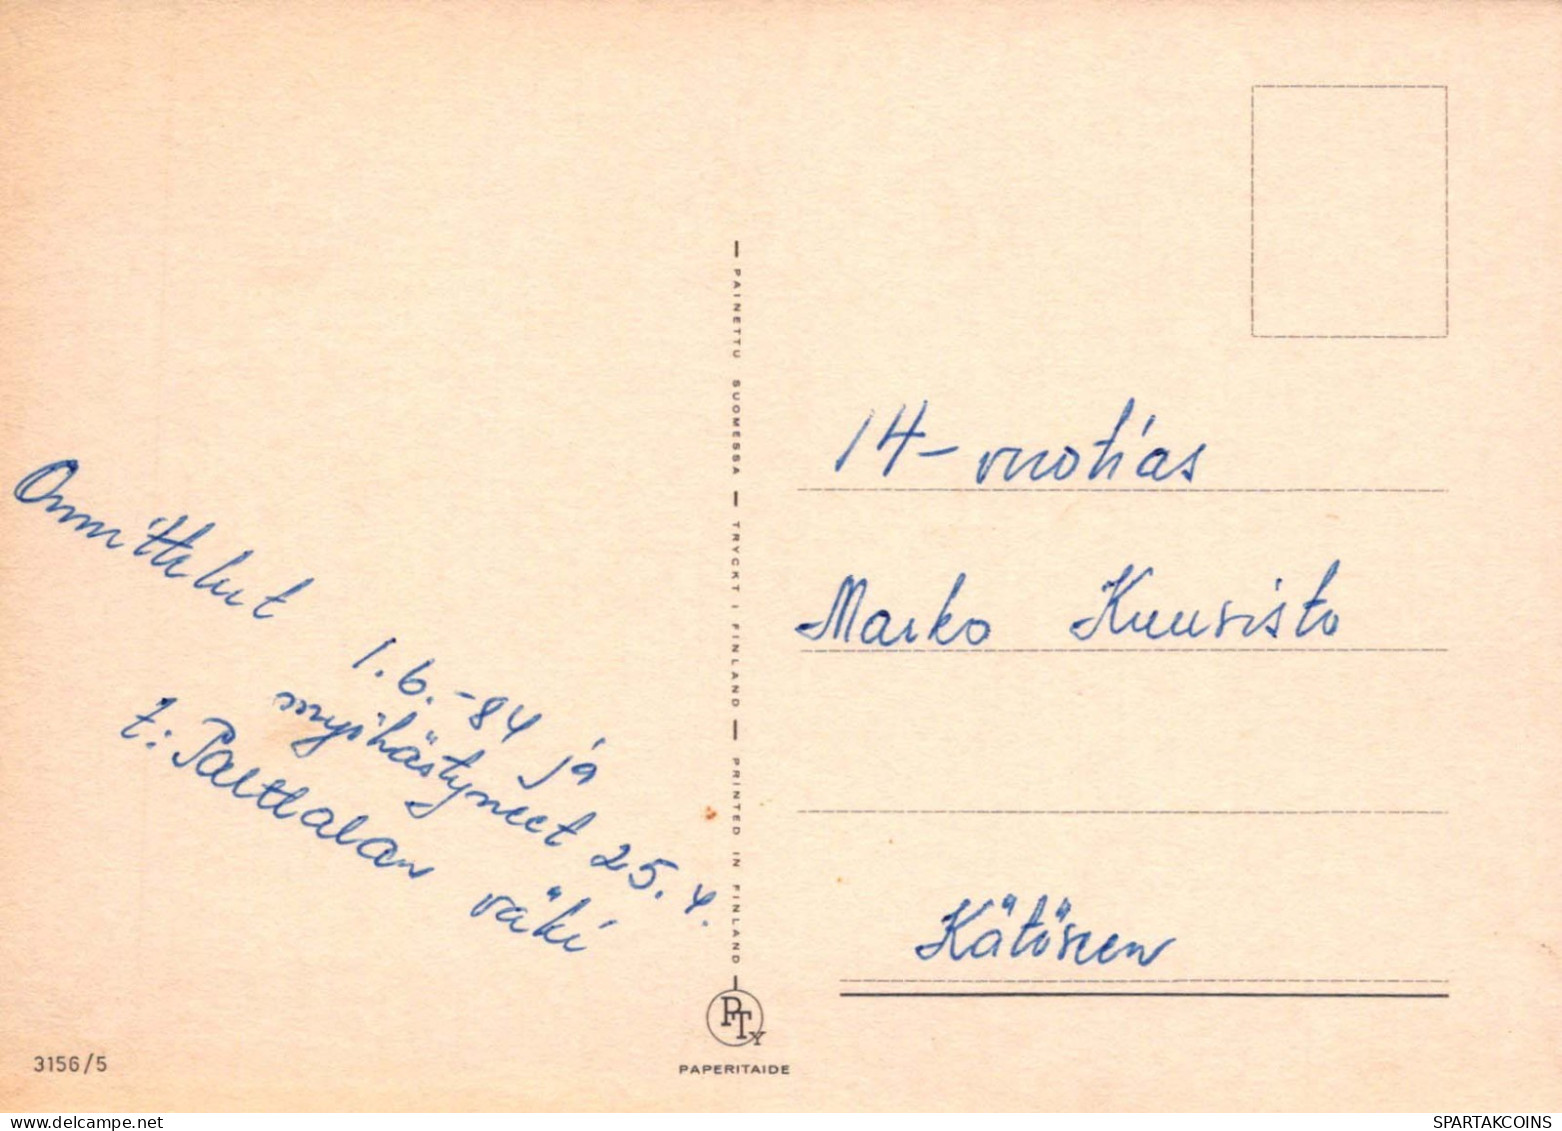 Onnittelut
1.6.-84 ja
myöhästyneet 25.4.
t: Parttalan väki
3156/5
PAINETTU SUOMESSA — TRYCKT I FINLAND — PRINTED IN FINLAND
PTY
PAPERITAIDE
14-vuotias
Marko Kuusisto
Kätöseen
SPARTAKCOINS